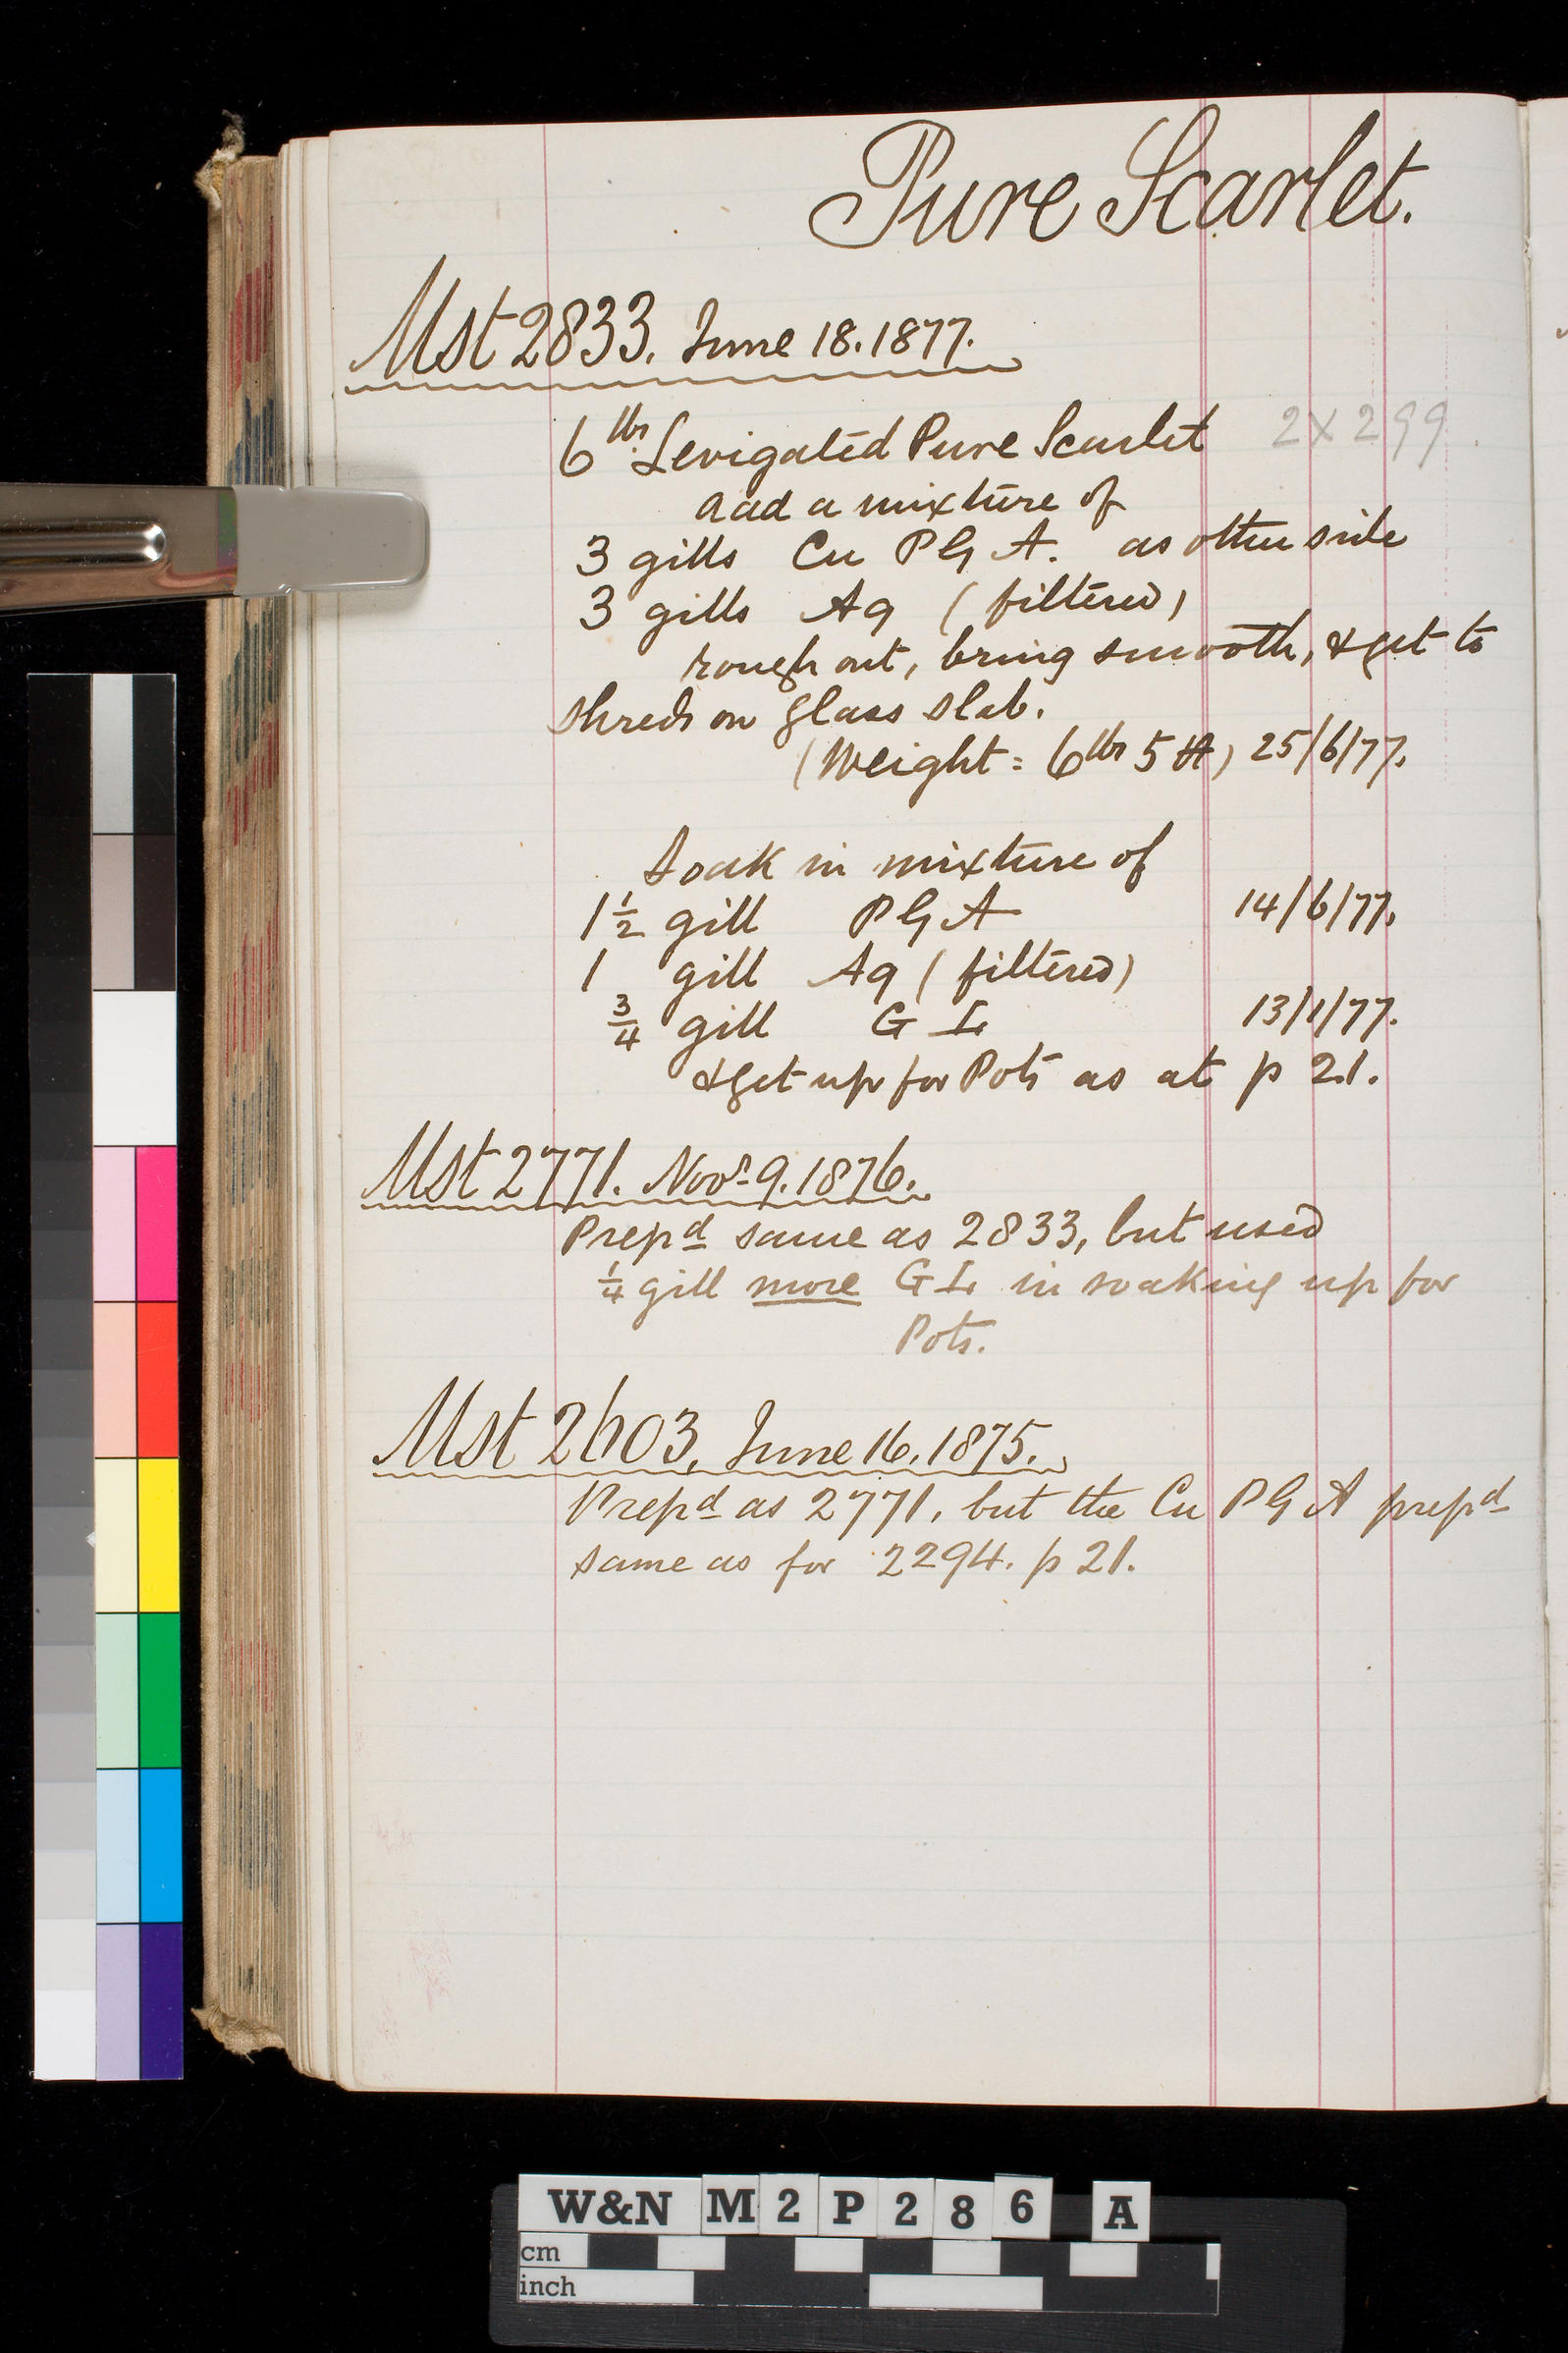 Pure Scarlet.
Mst 2833. June 18. 1877.
6 lbs Levigated Pure Scarlet 2X299
add a mixture of
3 gills Cu P G A. as other side
3 gills Aq (filtered)
rough out, bring smooth, & get to
shreds on glass slab.
(Weight = 6 lbs 5 ) 25/6/77.
Soak in mixture of
1 1/2 gill P G A 14/6/77.
1 gill Aq (filtered)
3/4 gill G L 13/1/77.
& get up for Pots as at p 21.
Mst 2771. Novr. 9. 1876.
Prepd same as 2833, but used
1/4 gill more G L in soaking up for
Pots.
Mst 2603, June 16. 1875.
Prepd as 2771, but the Cu P G A prepd
same as for 2294. p 21.
W&N M 2 P 2 8 6 A
cm
inch